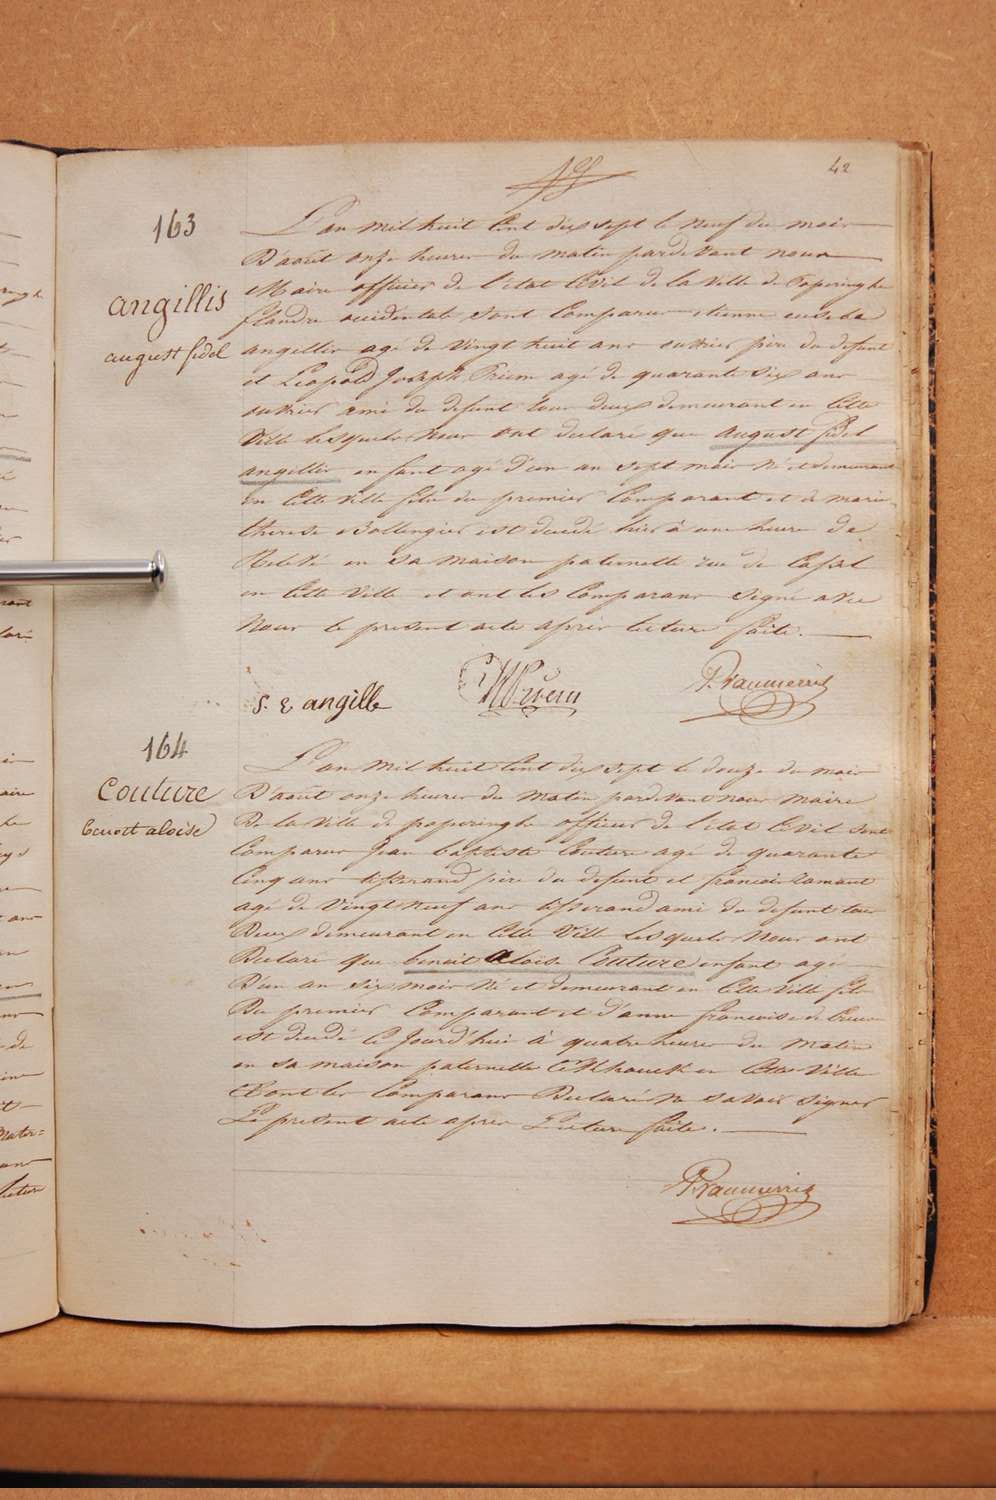 42
163
angillis
august fidel
L'an mil huit Cent dix sept le neuf du mois
D'août onze heures du matin pardevant nous
Maire officier de l'état Civil de la Ville de Poperinghe
flandre occidentale sont Comparus etienne eusebe
angillis agé de Vingt huit ans ouvrier père du defunt
et Leopold Joseph Priem agé de quarante six ans
ouvrier ami du defunt tous deux demeurant en Cette
Ville lesquels Nous ont declaré que august fidel
angillis enfant agé d'un an sept mois Né et demeurant
en Cette Ville fils du premier Comparant et de marie
therese Bollengier est decedé hier à une heure de
Relevé en sa maison paternelle rue de Cassel
en Cette Ville et ont les Comparans signé avec
Nous le present acte après lecture faite.
S. E angille
164
Couture
benoit aloise
L'an mil huit Cent dix sept le douze du mois
D'août onze heures du Matin pardevant nous maire
De la Ville de poperinghe officier de l'etat Civil sont
Comparus Jean baptiste Couture agé de quarante
Cinq ans tisserand père du defunt et francois Lamant
agé de Vingt Neuf ans tisserand ami du defunt tous
Deux demeurant en Cette Ville lesquels Nous ont
Declaré que benoit aloise Couture enfant agé
D'un an six mois Né et demeurant en Cette Ville fils
Du premier Comparant et d'anne francoise
est decedé Ce Jourd'hui à quatre heures du Matin
en sa maison paternelle en Cette Ville
Et ont les Comparans Declaré Ne savoir signer
Le present acte après Lecture faite.